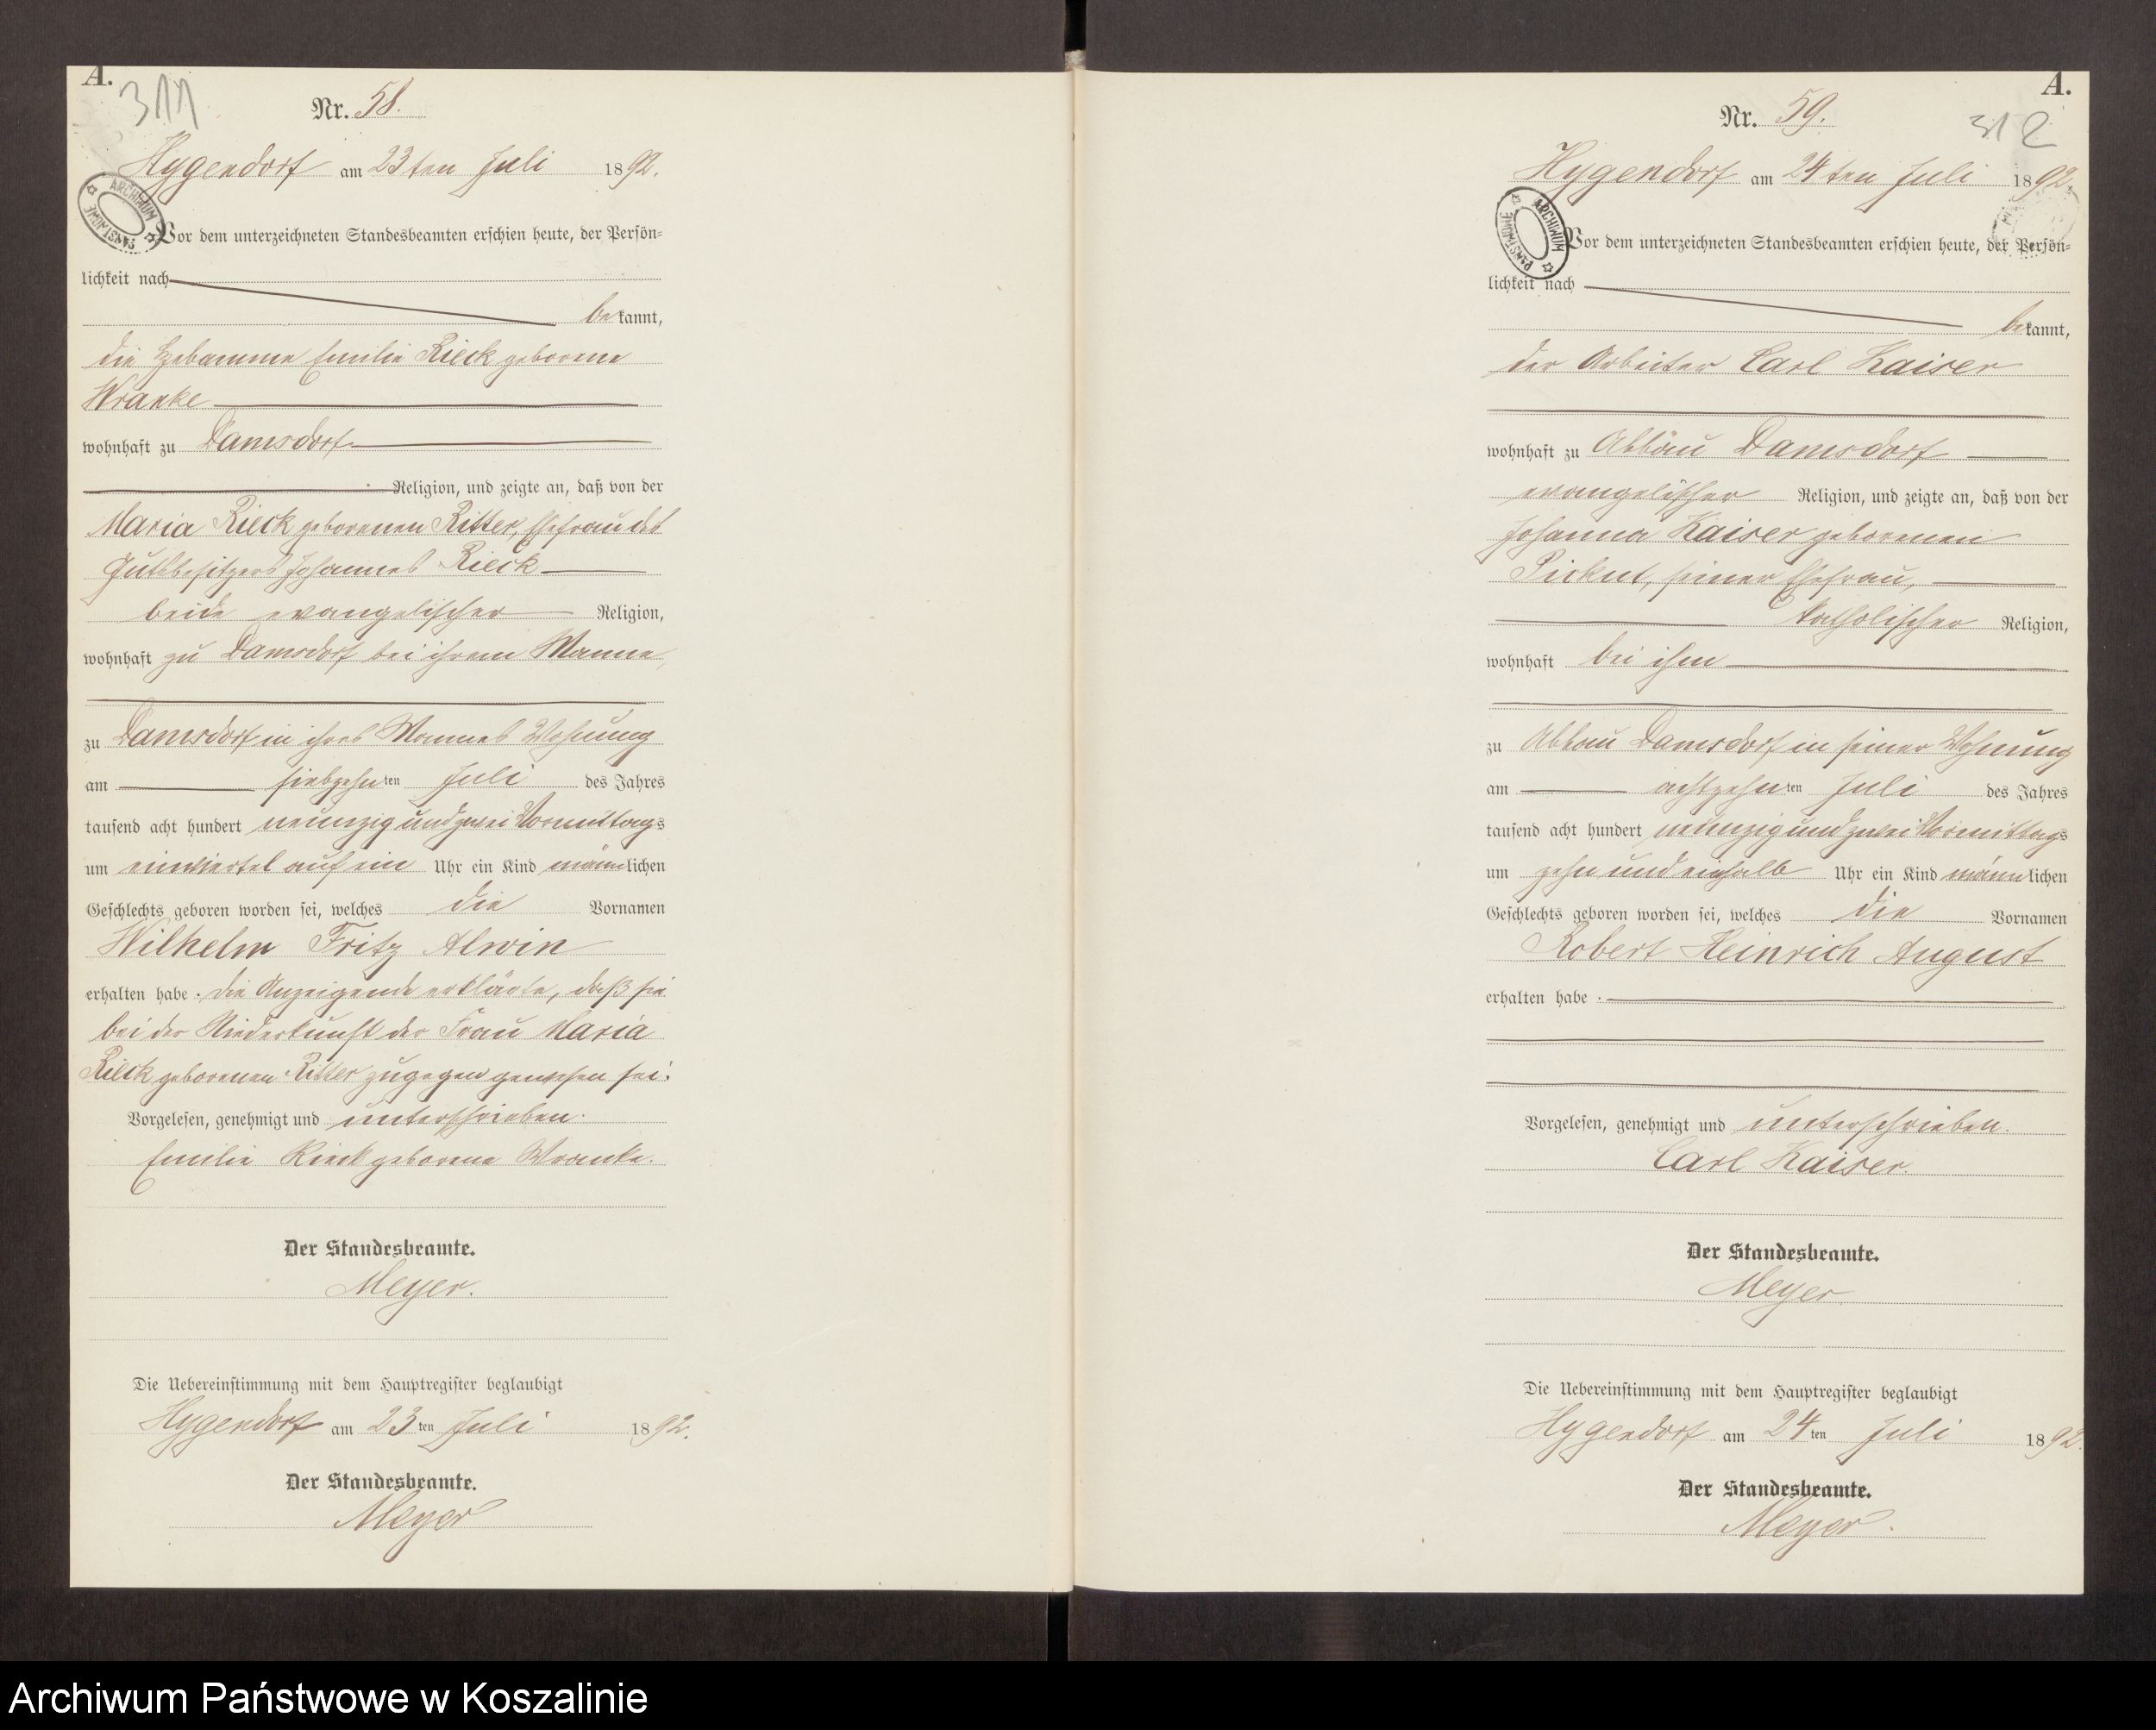 A.
311
Nr. 58.
Hygendorf am 23ten Juli 1892.
ARCHIWUM PAŃSTWOWE
Vor dem unterzeichneten Standesbeamten erschien heute, der Persön=
lichkeit nach
be kannt,
die Hebamme Emilie Rieck geborene
Wranke
wohnhaft zu Damsdorf
Religion, und zeigte an, daß von der
Maria Rieck geborenen Ritter, Ehefrau des
Gutsbesitzers Johannes Rieck
beide evangelischer Religion,
wohnhaft zu Damsdorf bei ihrem Manne,
zu Damsdorf in ihres Mannes Wohnung
am siebzehnten Juli des Jahres
tausend acht hundert neunzig und zwei Vormittags
um einviertel auf ein Uhr ein Kind männlichen
Geschlechts geboren worden sei, welches die Vornamen
Wilhelm Fritz Alwin
erhalten habe. Die Anzeigende erklärte, daß sie
bei der Niederkunft der Frau Maria
Rieck geborenen Ritter zugegen gewesen sei.
Vorgelesen, genehmigt und unterschrieben.
Emilie Rieck geborene Wranke.
Der Standesbeamte.
Meyer.
Die Uebereinstimmung mit dem Hauptregister beglaubigt
Hygendorf am 23ten Juli 1892.
Der Standesbeamte.
Meyer
A.
312
Nr. 59.
Hygendorf am 24ten Juli 1892.
ARCHIWUM PAŃSTWOWE
Vor dem unterzeichneten Standesbeamten erschien heute, der Persön=
lichkeit nach
be kannt,
der Arbeiter Carl Kaiser
wohnhaft zu Abbau Damsdorf
evangelischer Religion, und zeigte an, daß von der
Johanna Kaiser geborenen
Pirkut, seiner Ehefrau,
katholischer Religion,
wohnhaft bei ihm
zu Abbau Damsdorf in seiner Wohnung
am achtzehnten Juli des Jahres
tausend acht hundert neunzig und zwei Vormittags
um zehn und einhalb Uhr ein Kind männlichen
Geschlechts geboren worden sei, welches die Vornamen
Robert Heinrich August
erhalten habe.
Vorgelesen, genehmigt und unterschrieben.
Carl Kaiser.
Der Standesbeamte.
Meyer
Die Uebereinstimmung mit dem Hauptregister beglaubigt
Hygendorf am 24ten Juli 1892.
Der Standesbeamte.
Meyer.
Archiwum Państwowe w Koszalinie